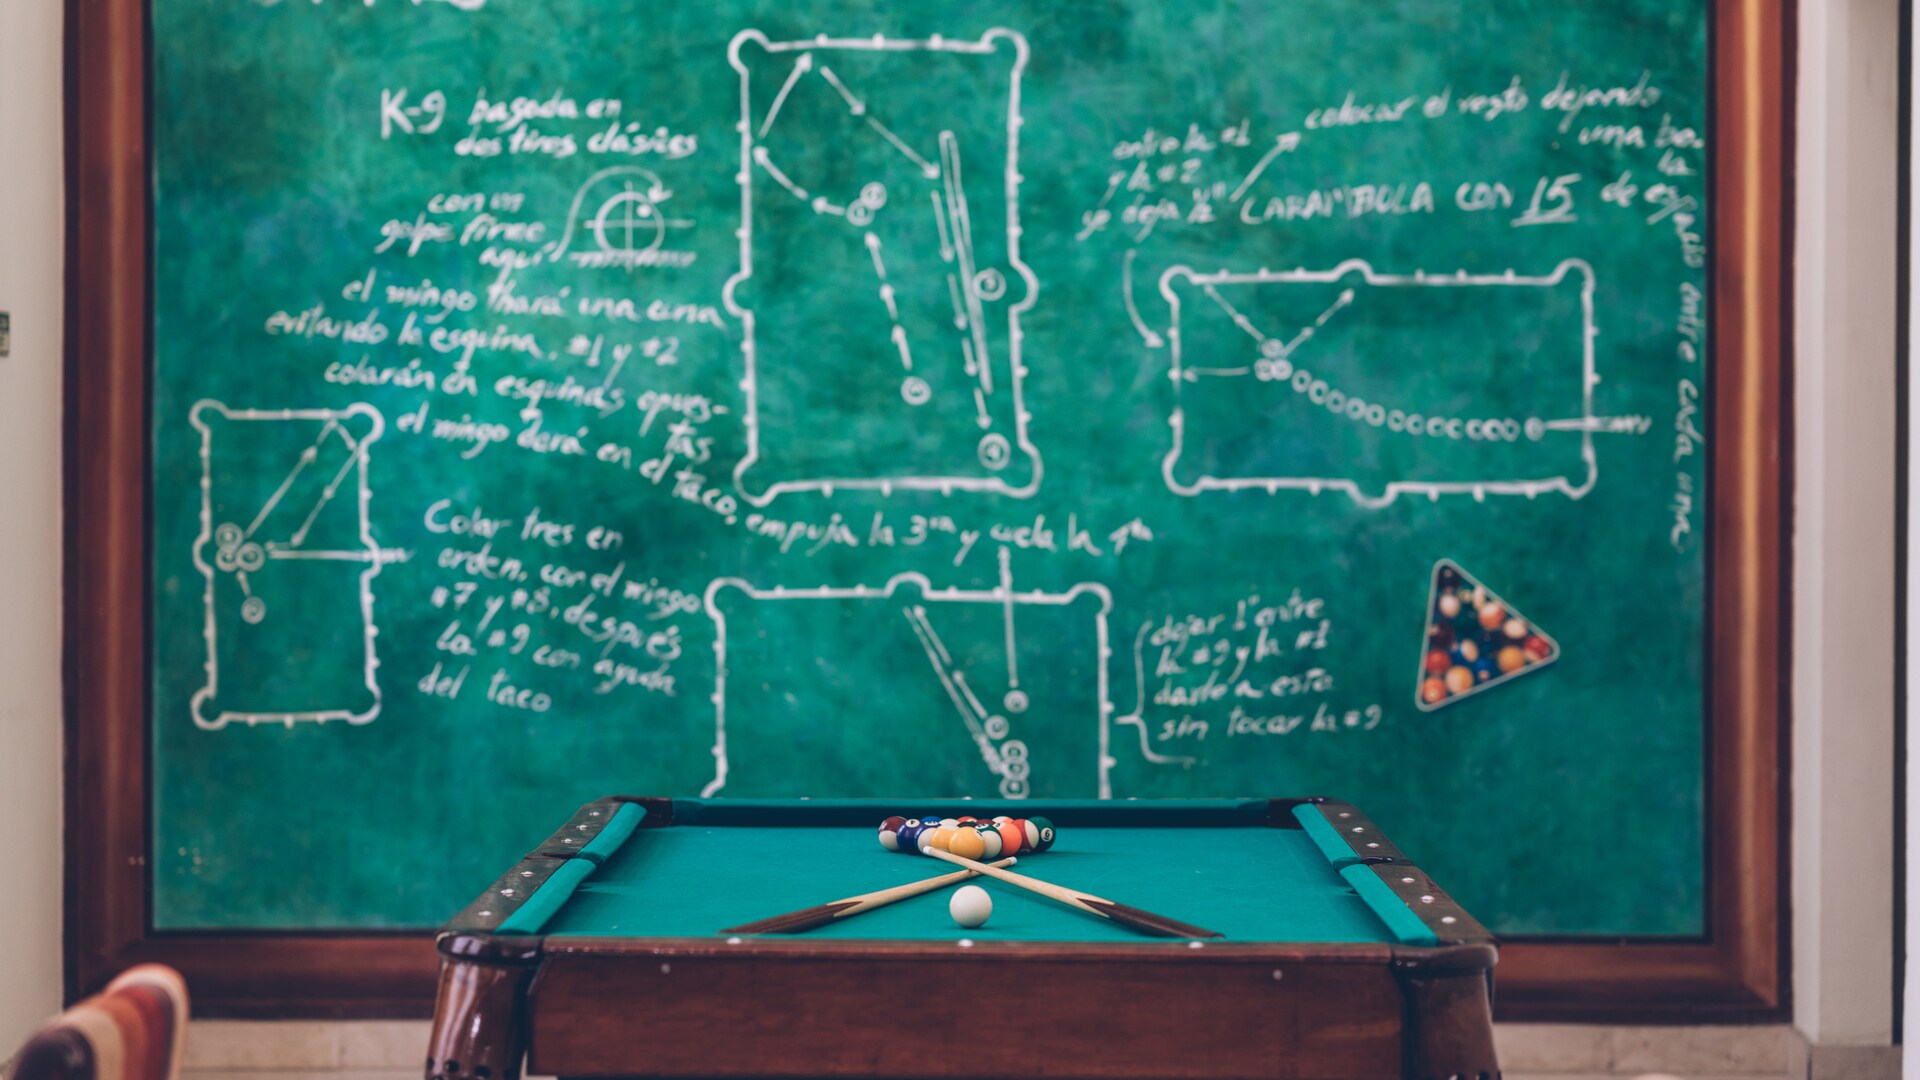 K-9 basada en
dos tiros clásicos
con un
golpe firme
aquí
el mingo hará una curva
evitando la esquina, #1 y #2
colarán en esquinas opues-
tas
el mingo dará en el taco, empuja la 3ra y cuela la
Colar tres en
orden, con el mingo
#7 y #8, después
la #9 con ayuda
del taco
entre la #1
y la #2
se deja ½"
colocar el resto dejando
una bo
la
CARAMBOLA CON 15 de espacio entre cada una
dejar 1" entre
la #9 y la #1
darle a esta
sin tocar la #9
6